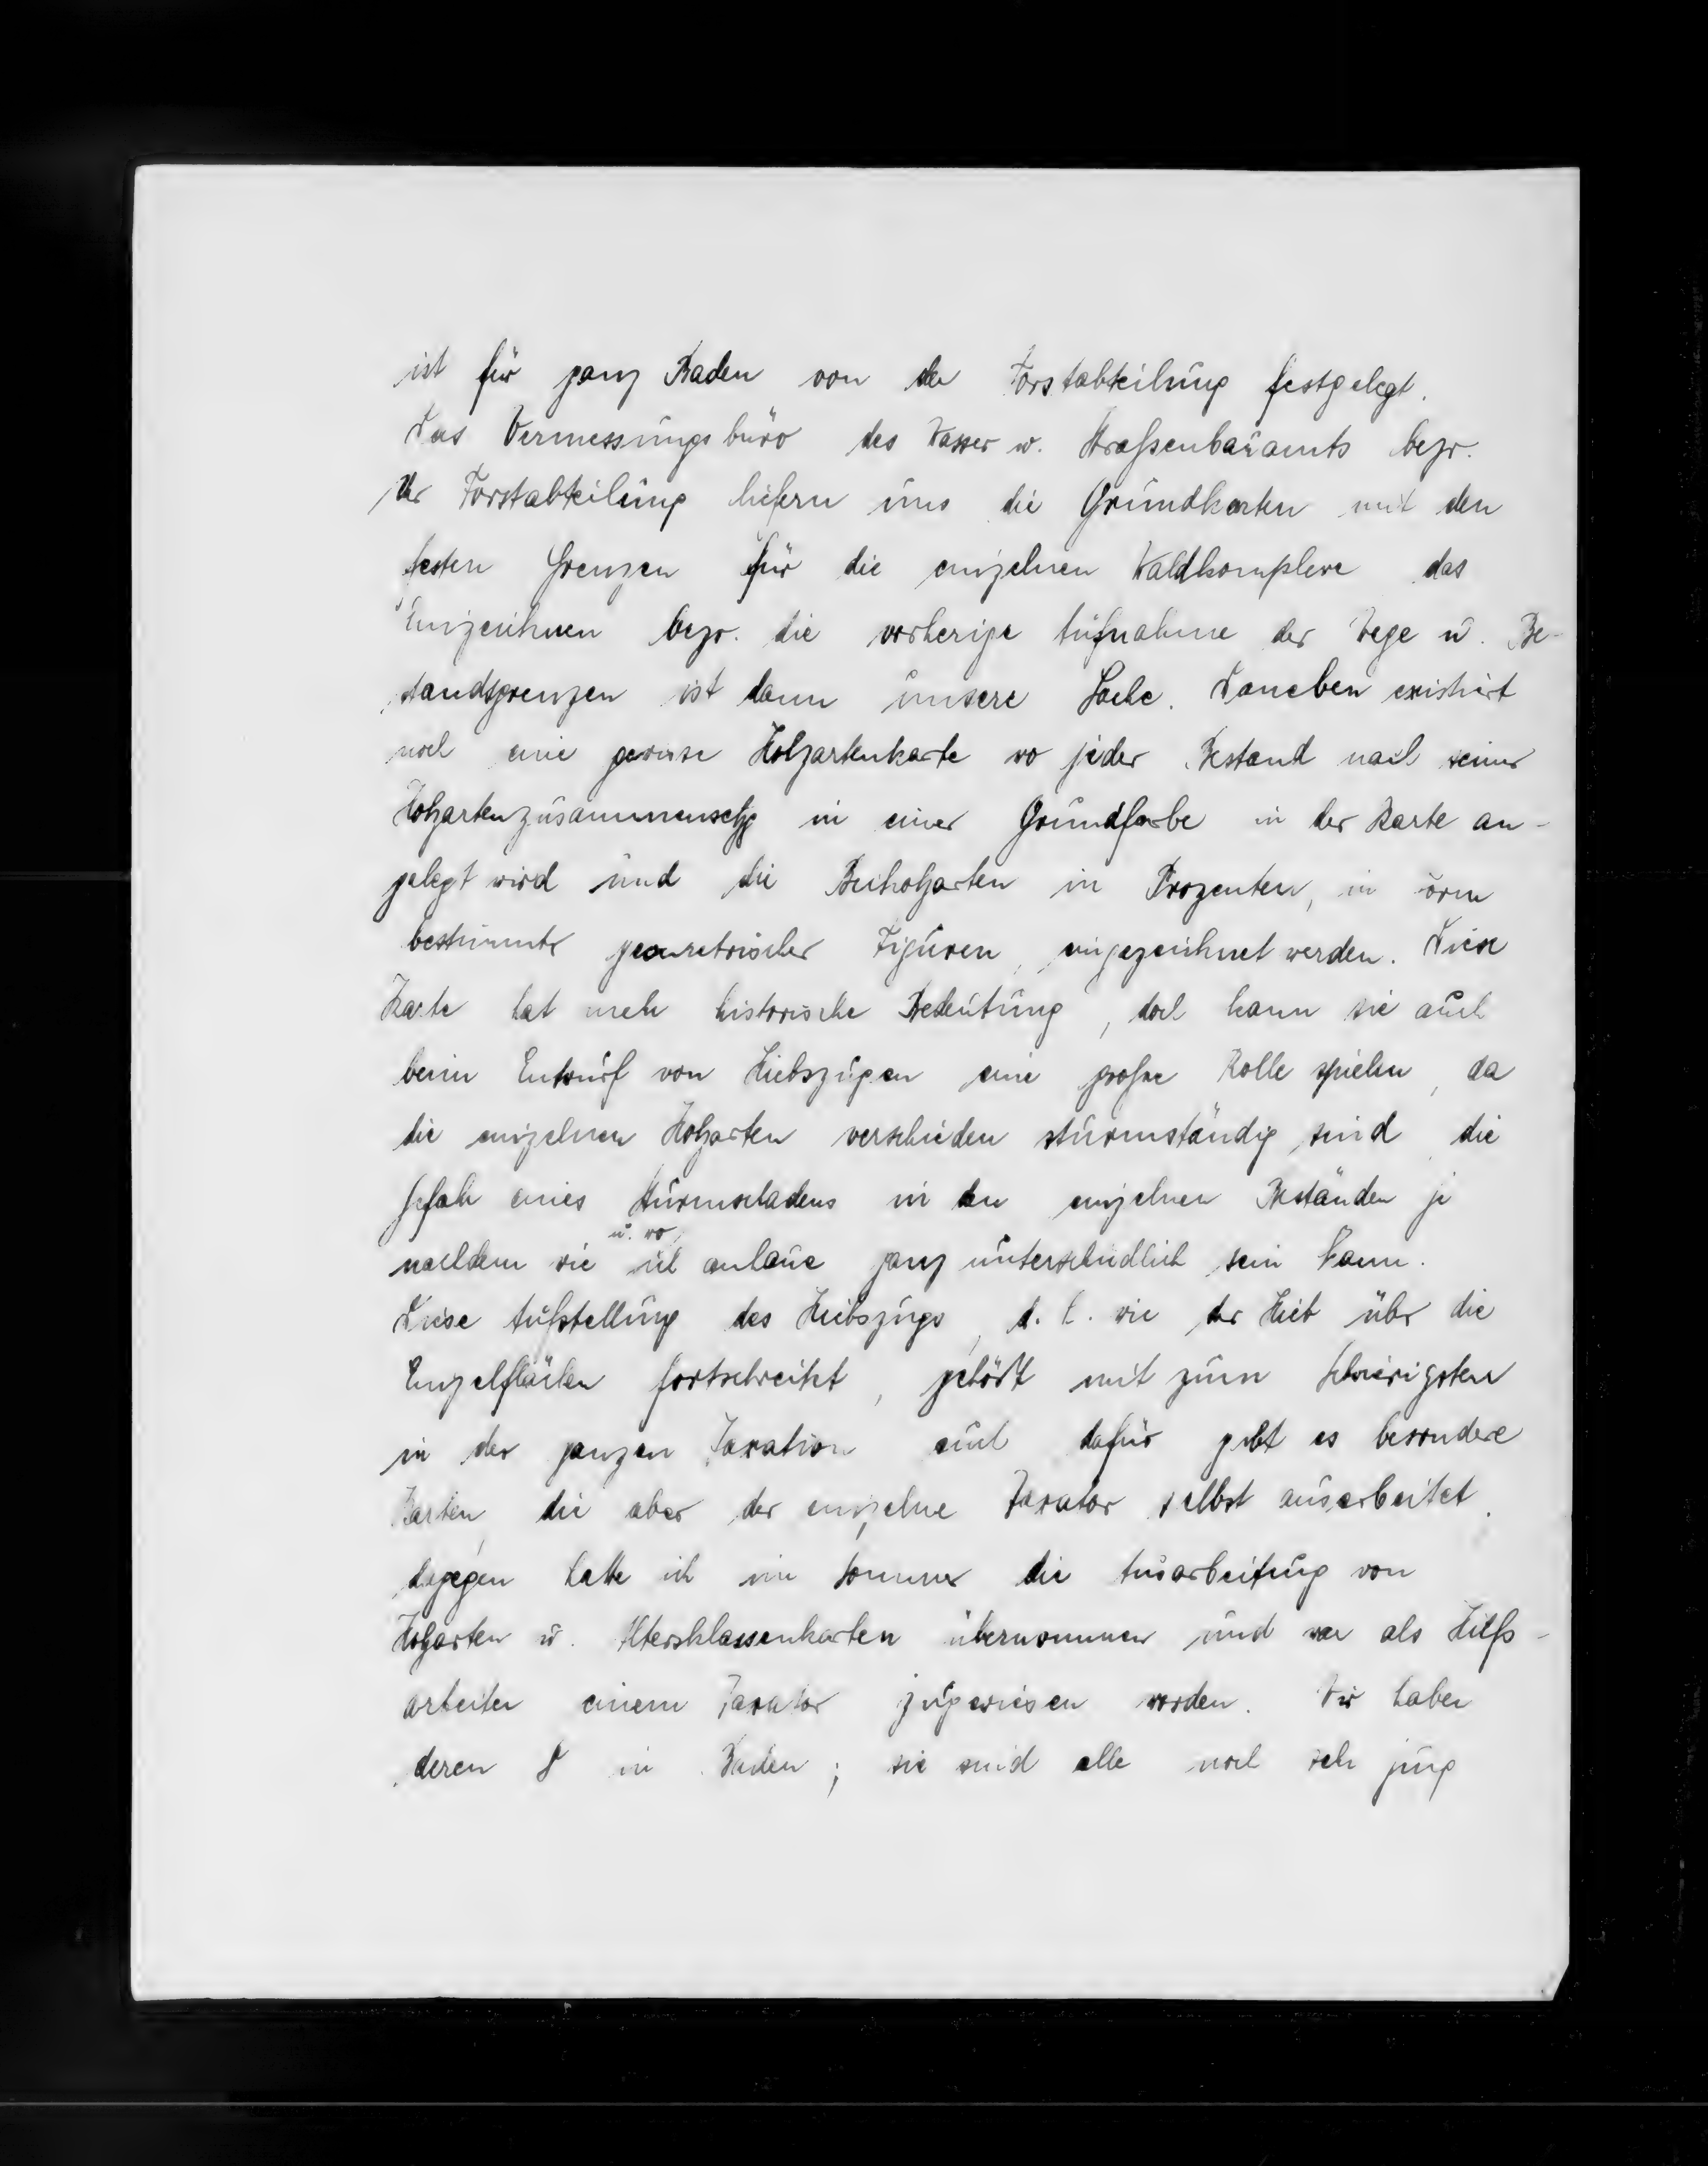 ist für ganz Baden von der Forstabteilung festgelegt.
Das Vermessungsbüro des Wasser u. Straßenbauamts bezw.
der Forstabteilung liefern uns die Grundkarten mit den
festen Grenzen für die einzelnen Waldkomplexe das
Einzeichnen bezw. die vorherige Aufnahme der Wege u. Be-
standsgrenzen ist dann unsere Sache. Daneben existiert
noch eine gewisse Holzartenkarte wo jeder Bestand nach seiner
Holzartenzusammensetzg in einer Grundfarbe in der Karte an-
gelegt wird und die Beiholzarten in Prozenten, in Form
bestimmter geometrischer Figuren, eingezeichnet werden. Diese
Karte hat mehr historische Bedeutung, doch kann sie auch
beim Entwurf von Hiebszügen eine große Rolle spielen, da
die einzelnen Holzarten verschieden sturmständig sind, die
Gefahr eines Sturmschadens in den einzelnen Beständen je
nachdem wie u. wo ich anhaue ganz unterschiedlich sein kann.
Diese Aufstellung des Hiebszugs, d. h. wie der Hieb über die
Einzelflächen fortschreitet, gehört mit zum schwierigsten
in der ganzen Taxation und dafür gibt es besondere
Karten, die aber der einzelne Taxator selbst ausarbeitet.
dagegen hatte ich im Sommer die Ausarbeitung von
Holzarten u. Altersklassenkarten übernommen und war als Hilfs-
arbeiter einem Taxator zugewiesen worden. Wir haben
deren 8 in Baden; sie sind alle noch sehr jung